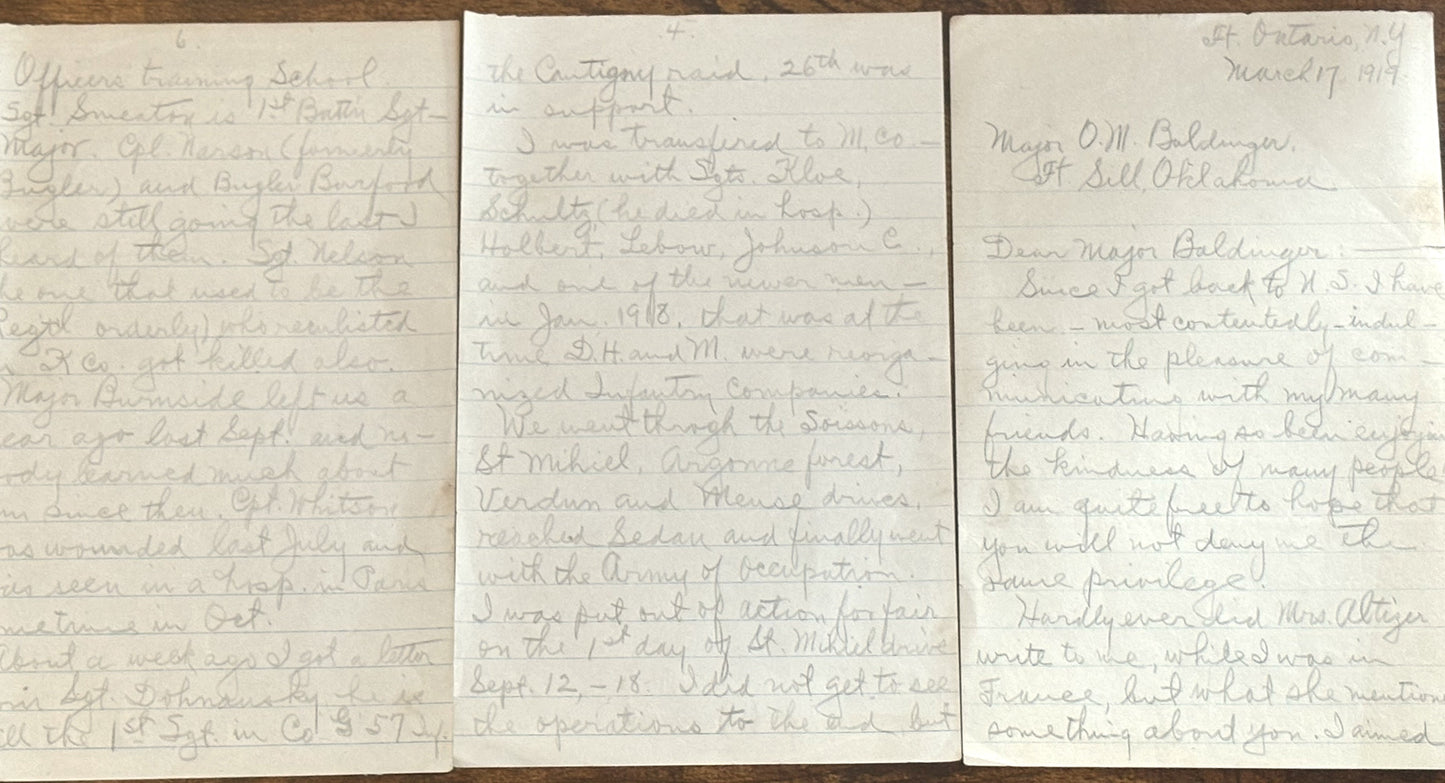 6.
Officers training School.
Sgt. Smeaton is 1st Batt'n Sgt-
Major. Cpl. Narson (formerly
Bugler) and Bugler Burford
were still going the last I
heard of them. Sgt. Nelson
he one that used to be the
Regt'l orderly) who reenlisted
K Co. got killed also.
Major Burnside left us a
ear ago last Sept. and no-
ody learned much about
m since then. Cpt. Whitson
as wounded last July and
as seen in a hosp. in Paris
metime in Oct.
About a week ago I got a letter
om Sgt. Dohnansky, he is
ll the 1st Sgt. in Co G 57 Inf.
4.
the Cantigny raid, 26th was
in support.
I was transfered to M. Co. -
together with Sgts. Kloe,
Schultz, (he died in hosp.)
Halbert, Lebow, Johnson C.,
and one of the newer men -
in Jan. 1918, that was at the
time D.H. and M. were reorga-
nized Infantry Companies.
We went throgh the Soissons,
St Mihiel, Argonne forest,
Verdun and Meuse drives,
reached Sedan and finally went
with the Army of Occupation.
I was put out of action for fair
on the 1st day of St. Mihiel drive
Sept. 12, -18. I did not get to see
the operations to the end, but
Ft. Ontario, N.Y
March 17, 1919
Major O.M. Baldinger,
Ft. Sill, Oklahoma
Dear Major Baldinger:
Since I got back to U.S. I have
been - most contentedly - indul-
ging in the pleasure of com-
municating with my many
friends. Having so been enjoyin
the kindness of many people
I am quite free to hope that
you will not deny me the
same privilege.
Hardly ever did Mrs. Altizer
write to me, while I was in
France, but what she mention
something about you. I aimed